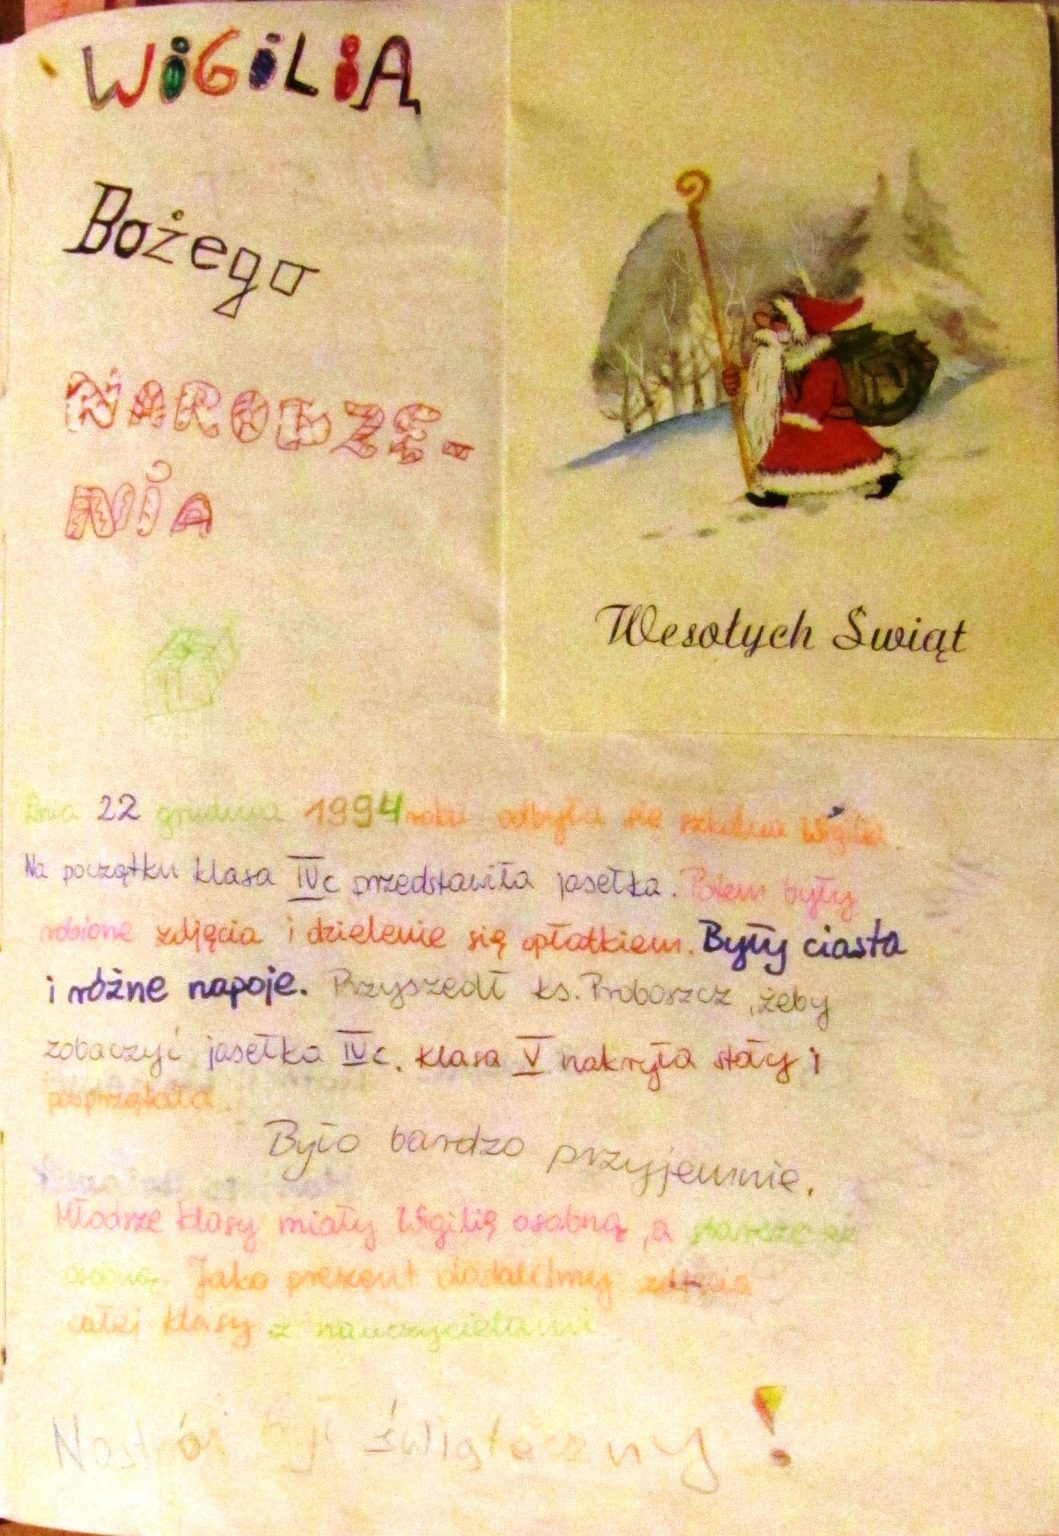 WiGiLiA
Bożego
NARODZE-
NiA
Wesołych Świąt
Dnia 22 grudnia 1994 roku odbyła się szkolna Wigilia.
Na początku klasa IVc przedstawiła jasełka. Potem były
robione zdjęcia i dzielenie się opłatkiem. Były ciasta
i różne napoje. Przyszedł ks. Proboszcz, żeby
zobaczyć jasełka IVc. klasa V nakryła stoły i
posprzątała.
Było bardzo przyjemnie.
Młodsze klasy miały Wigilię osobną, a starsze też
osobną. Jako prezent dostaliśmy zdjęcia
całej klasy z nauczycielami
Nastrój był świąteczny!